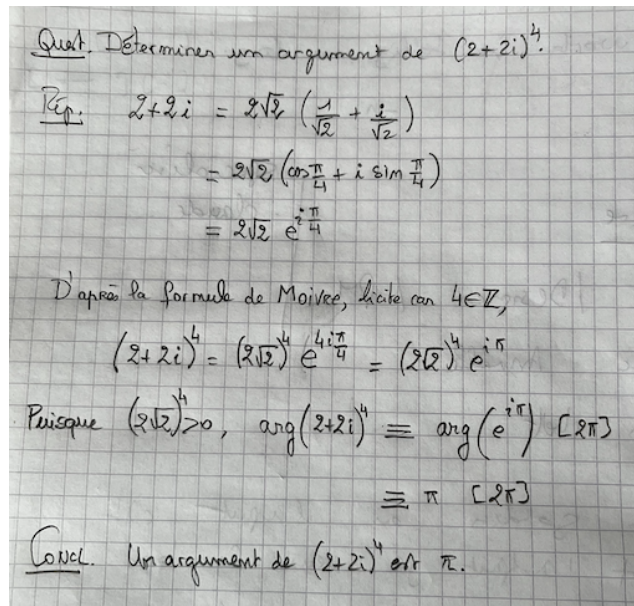 Quest. Déterminer un argument de (2+2i)^4.
Rép. 2+2i = 2√2 (1/√2 + i/√2)
= 2√2 (cos π/4 + i sin π/4)
= 2√2 e^{i π/4}
D'après la formule de Moivre, licite car 4∈ℤ,
(2+2i)^4 = (2√2)^4 e^{4i π/4} = (2√2)^4 e^{iπ}
Puisque (2√2)^4>0, arg(2+2i)^4 ≡ arg(e^{iπ}) [2π]
≡ π [2π]
Concl. Un argument de (2+2i)^4 est π.